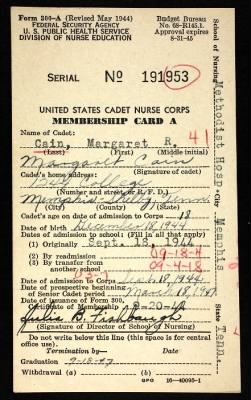 Form 300-A (Revised May 1944)
FEDERAL SECURITY AGENCY
U. S. PUBLIC HEALTH SERVICE
DIVISION OF NURSE EDUCATION
Budget Bureau
No. 68-R145.1.
Approval expires
8-31-45
SERIAL No 191953
UNITED STATES CADET NURSE CORPS
MEMBERSHIP CARD A
Name of Cadet: 41
Cain, Margaret R.
(Last) (First) (Middle initial)
Margaret Cain
Cadet's home address: (Signature)
College
(Number and street or R. F. D.)
Memphis Shelby Tenn.
Cadet's age on date of admission to Corps 18
Date of birth December 18,
Dates of admission to school: (Fill in all that apply)
(1) Originally Sept. 18, 1944
(2) By readmission 09-18-4
(3) By transfer from another school 09-4-18
Date of admission to Corps Sept. 18, 1944
Date of prospective beginning of Senior Cadet period March 18, 1947
Date of issuance of Form 300, Certificate of Membership
Julia B. Fishbaugh
(Signature of Director of School of Nursing)
Do not write below this line (this space is for central office use).
Termination by— Date
Graduation 9-18-47
Withdrawal (a) (b)
GPO 16-40095-1
School of Nursing Methodist Hosp. City Memphis State Tenn.